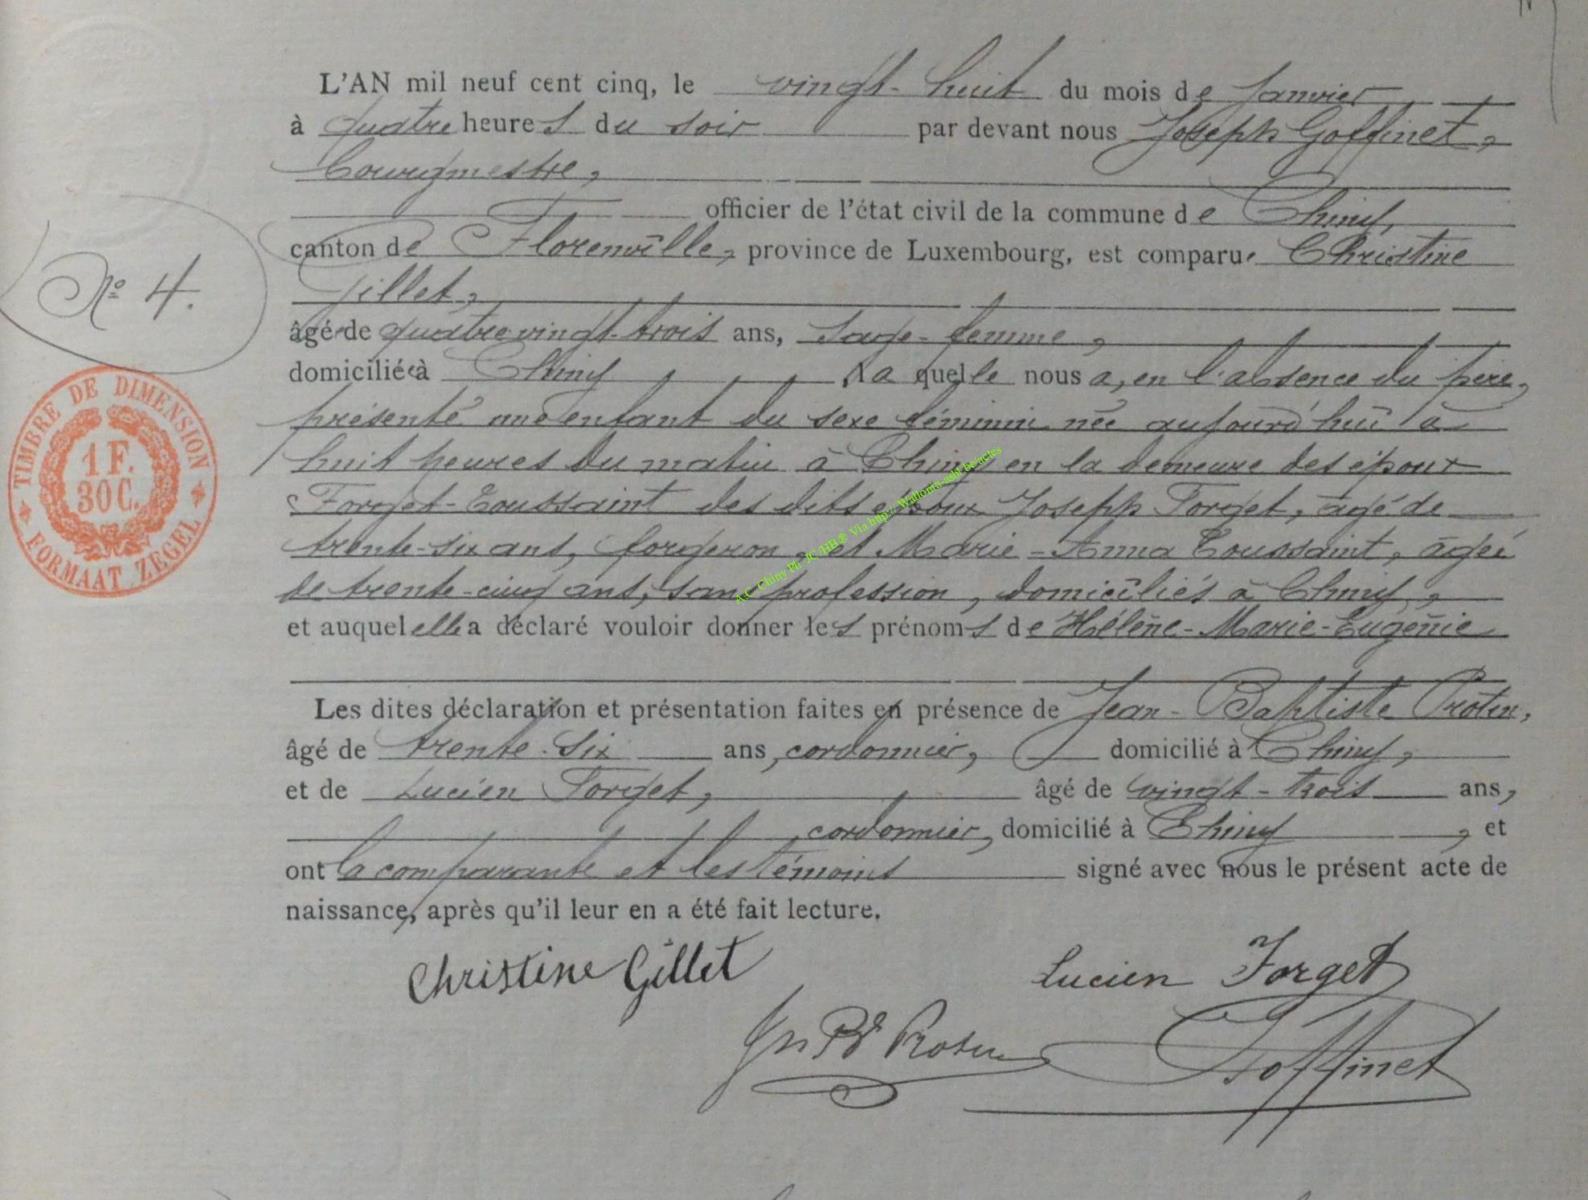 L'AN mil neuf cent cinq, le vingt-huit du mois de Janvier
à quatre heures du soir par devant nous Joseph Goffinet,
bourgmestre,
officier de l'état civil de la commune de Chiny,
canton de Florenville, province de Luxembourg, est comparue Christine
Gillet,
âgée de quatre-vingt-trois ans, sage-femme,
domiciliée à Chiny, la quelle nous a, en l'absence du père,
présenté une enfant du sexe féminin née aujourd'hui à
huit heures du matin à Chiny en la demeure des époux
Forget-Toussaint des dits époux Joseph Forget, âgé de
trente-six ans, forgeron, et Marie-Anna Toussaint, âgée
de trente-cinq ans, sans profession, domiciliés à Chiny,
et auquel elle a déclaré vouloir donner les prénoms de Hélène-Marie-Eugénie
Les dites déclaration et présentation faites en présence de Jean-Baptiste Protin,
âgé de trente-six ans, cordonnier, domicilié à Chiny,
et de Lucien Forget, âgé de vingt-trois ans,
cordonnier, domicilié à Chiny, et
ont la comparante et les témoins signé avec nous le présent acte de
naissance, après qu'il leur en a été fait lecture.
Christine Gillet
Lucien Forget
Jn Bte Protin
Goffinet
No 4.
TIMBRE DE DIMENSION
1 F.
30 C.
FORMAAT ZEGEL